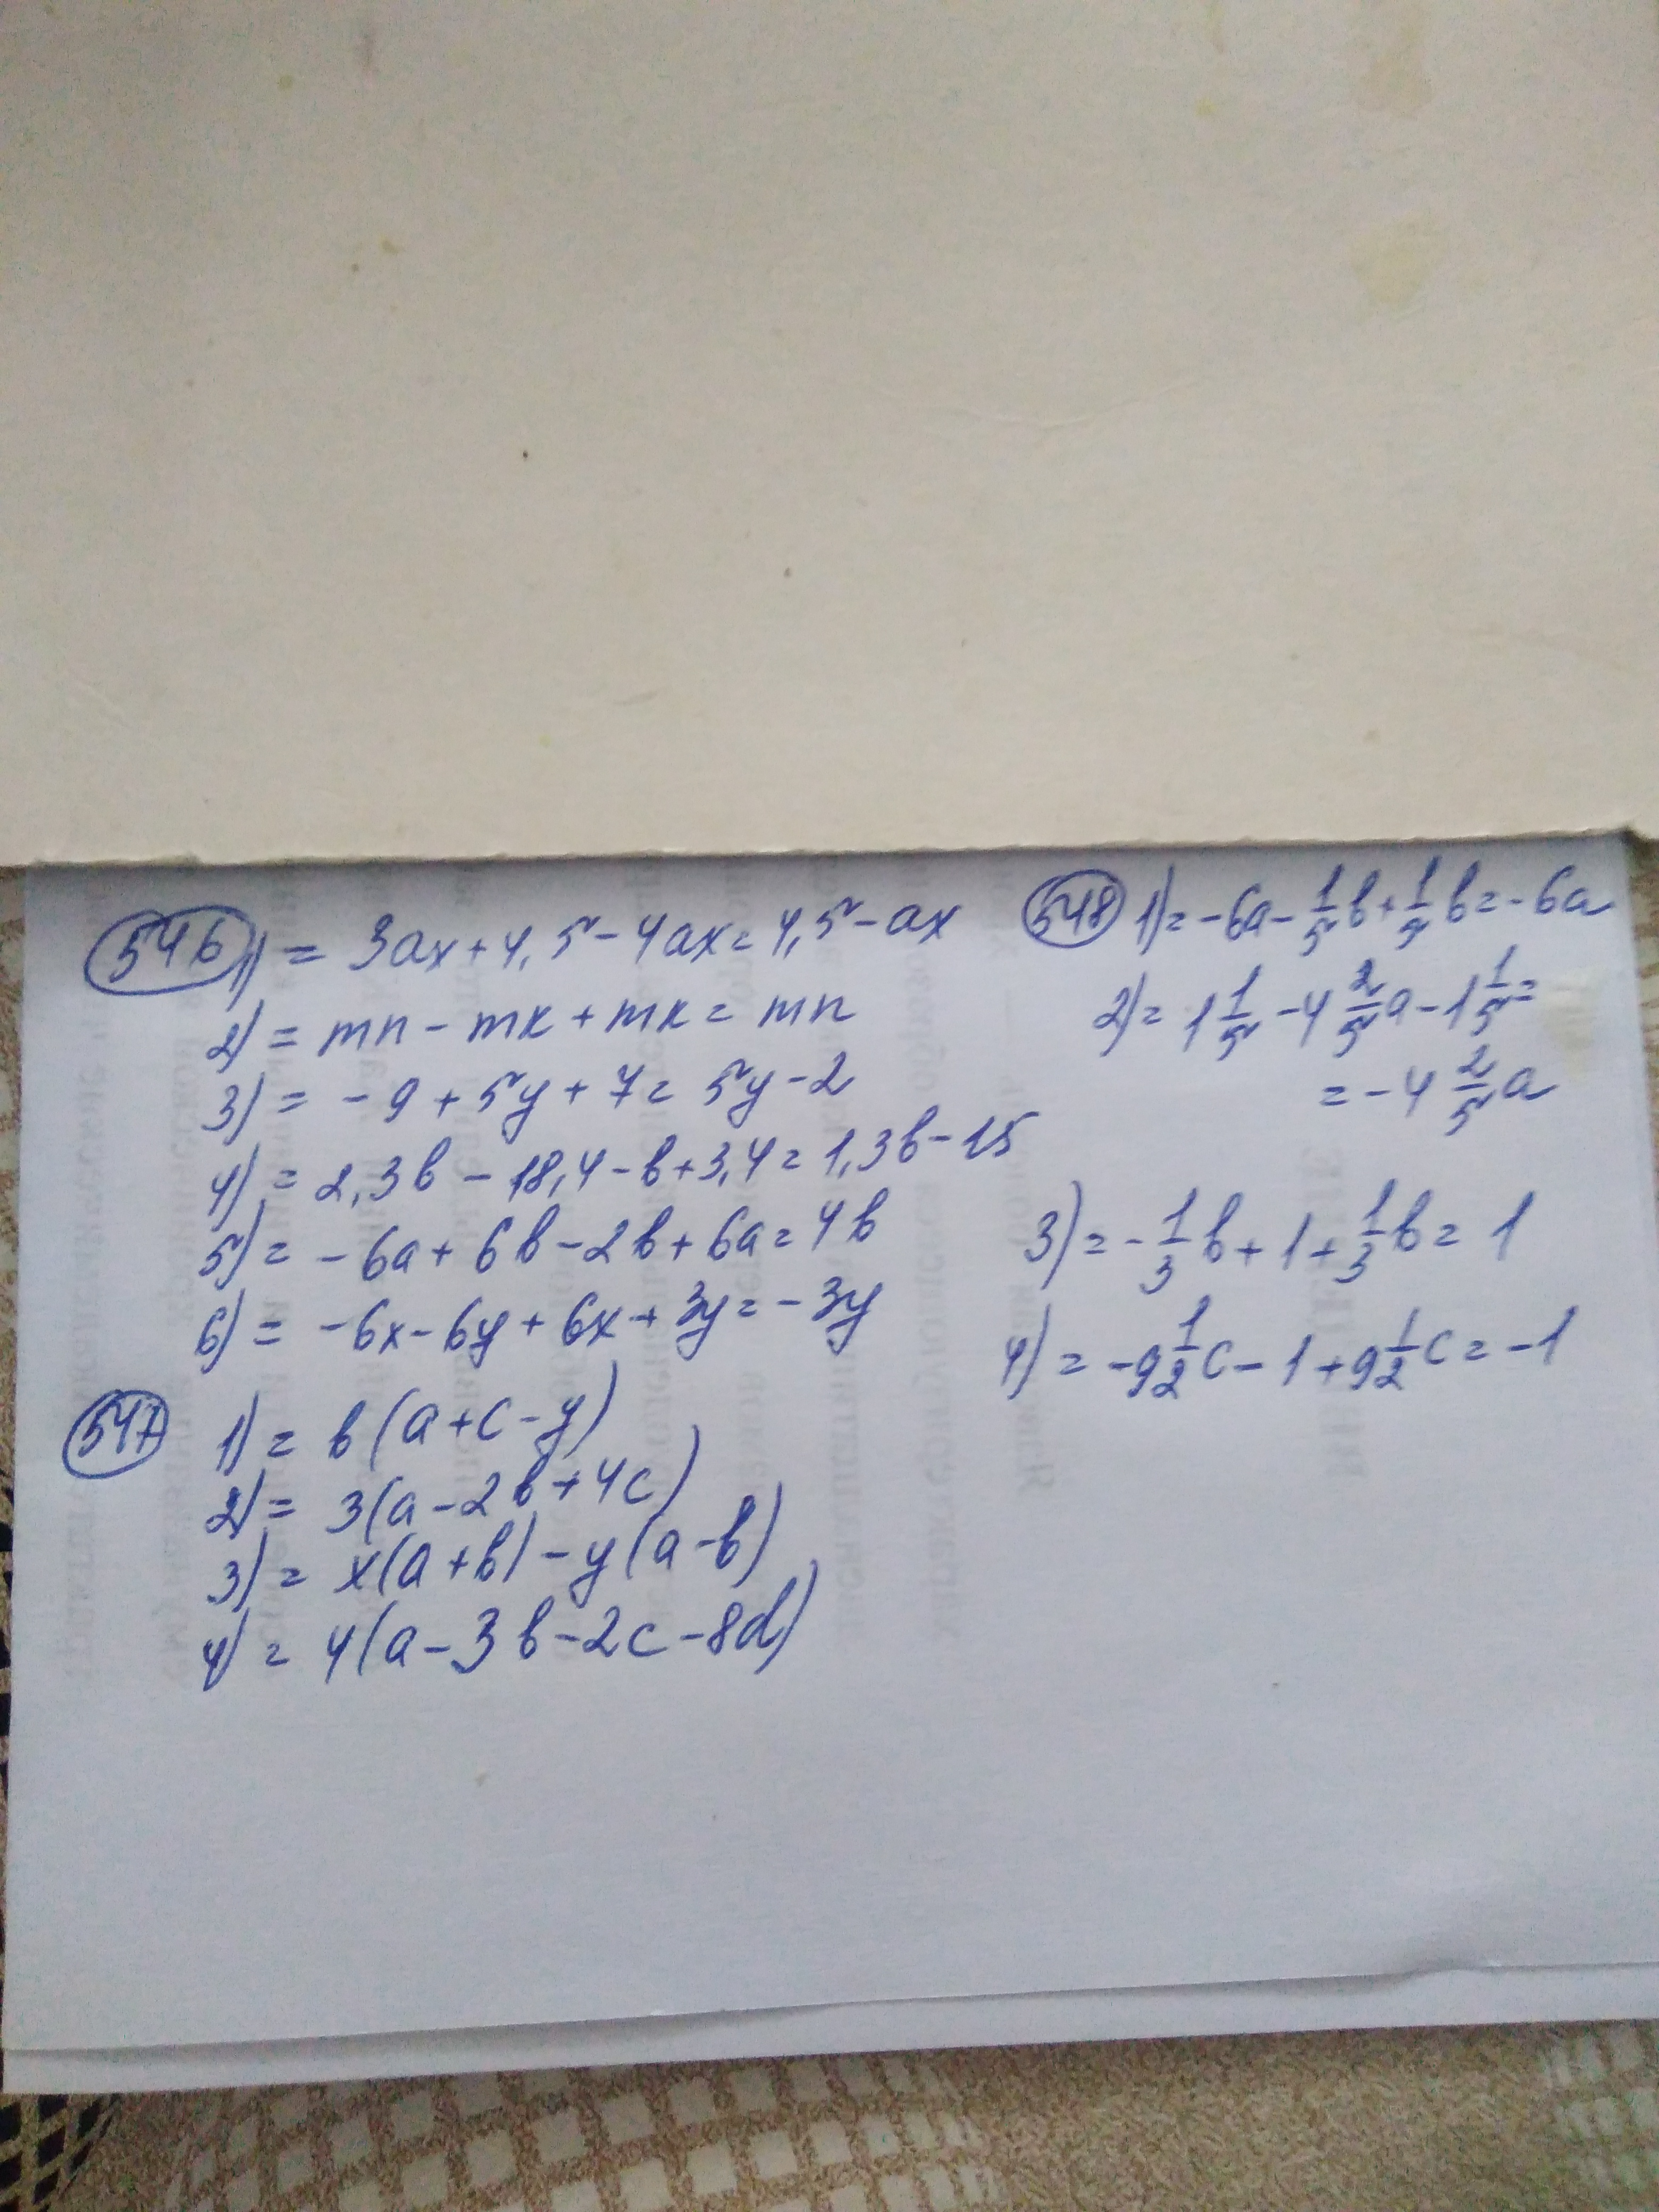 546 1) = 3ax + 4,5 - 4ax = 4,5 - ax
2) = mn - mk + mk = mn
3) = - 9 + 5y + 7 = 5y - 2
4) = 2,3b - 18,4 - b + 3,4 = 1,3b - 15
5) = - 6a + 6b - 2b + 6a = 4b
6) = - 6x - 6y + 6x + 3y = - 3y
547 1) = b(a + c - y)
2) = 3(a - 2b + 4c)
3) = x(a + b) - y(a - b)
4) = 4(a - 3b - 2c - 8d)
548 1) = - 6a - 1/5 b + 1/5 b = - 6a
2) = 1 1/5 - 4 2/5 a - 1 1/5 =
= - 4 2/5 a
3) = - 1/3 b + 1 + 1/3 b = 1
4) = - 9 1/2 c - 1 + 9 1/2 c = - 1